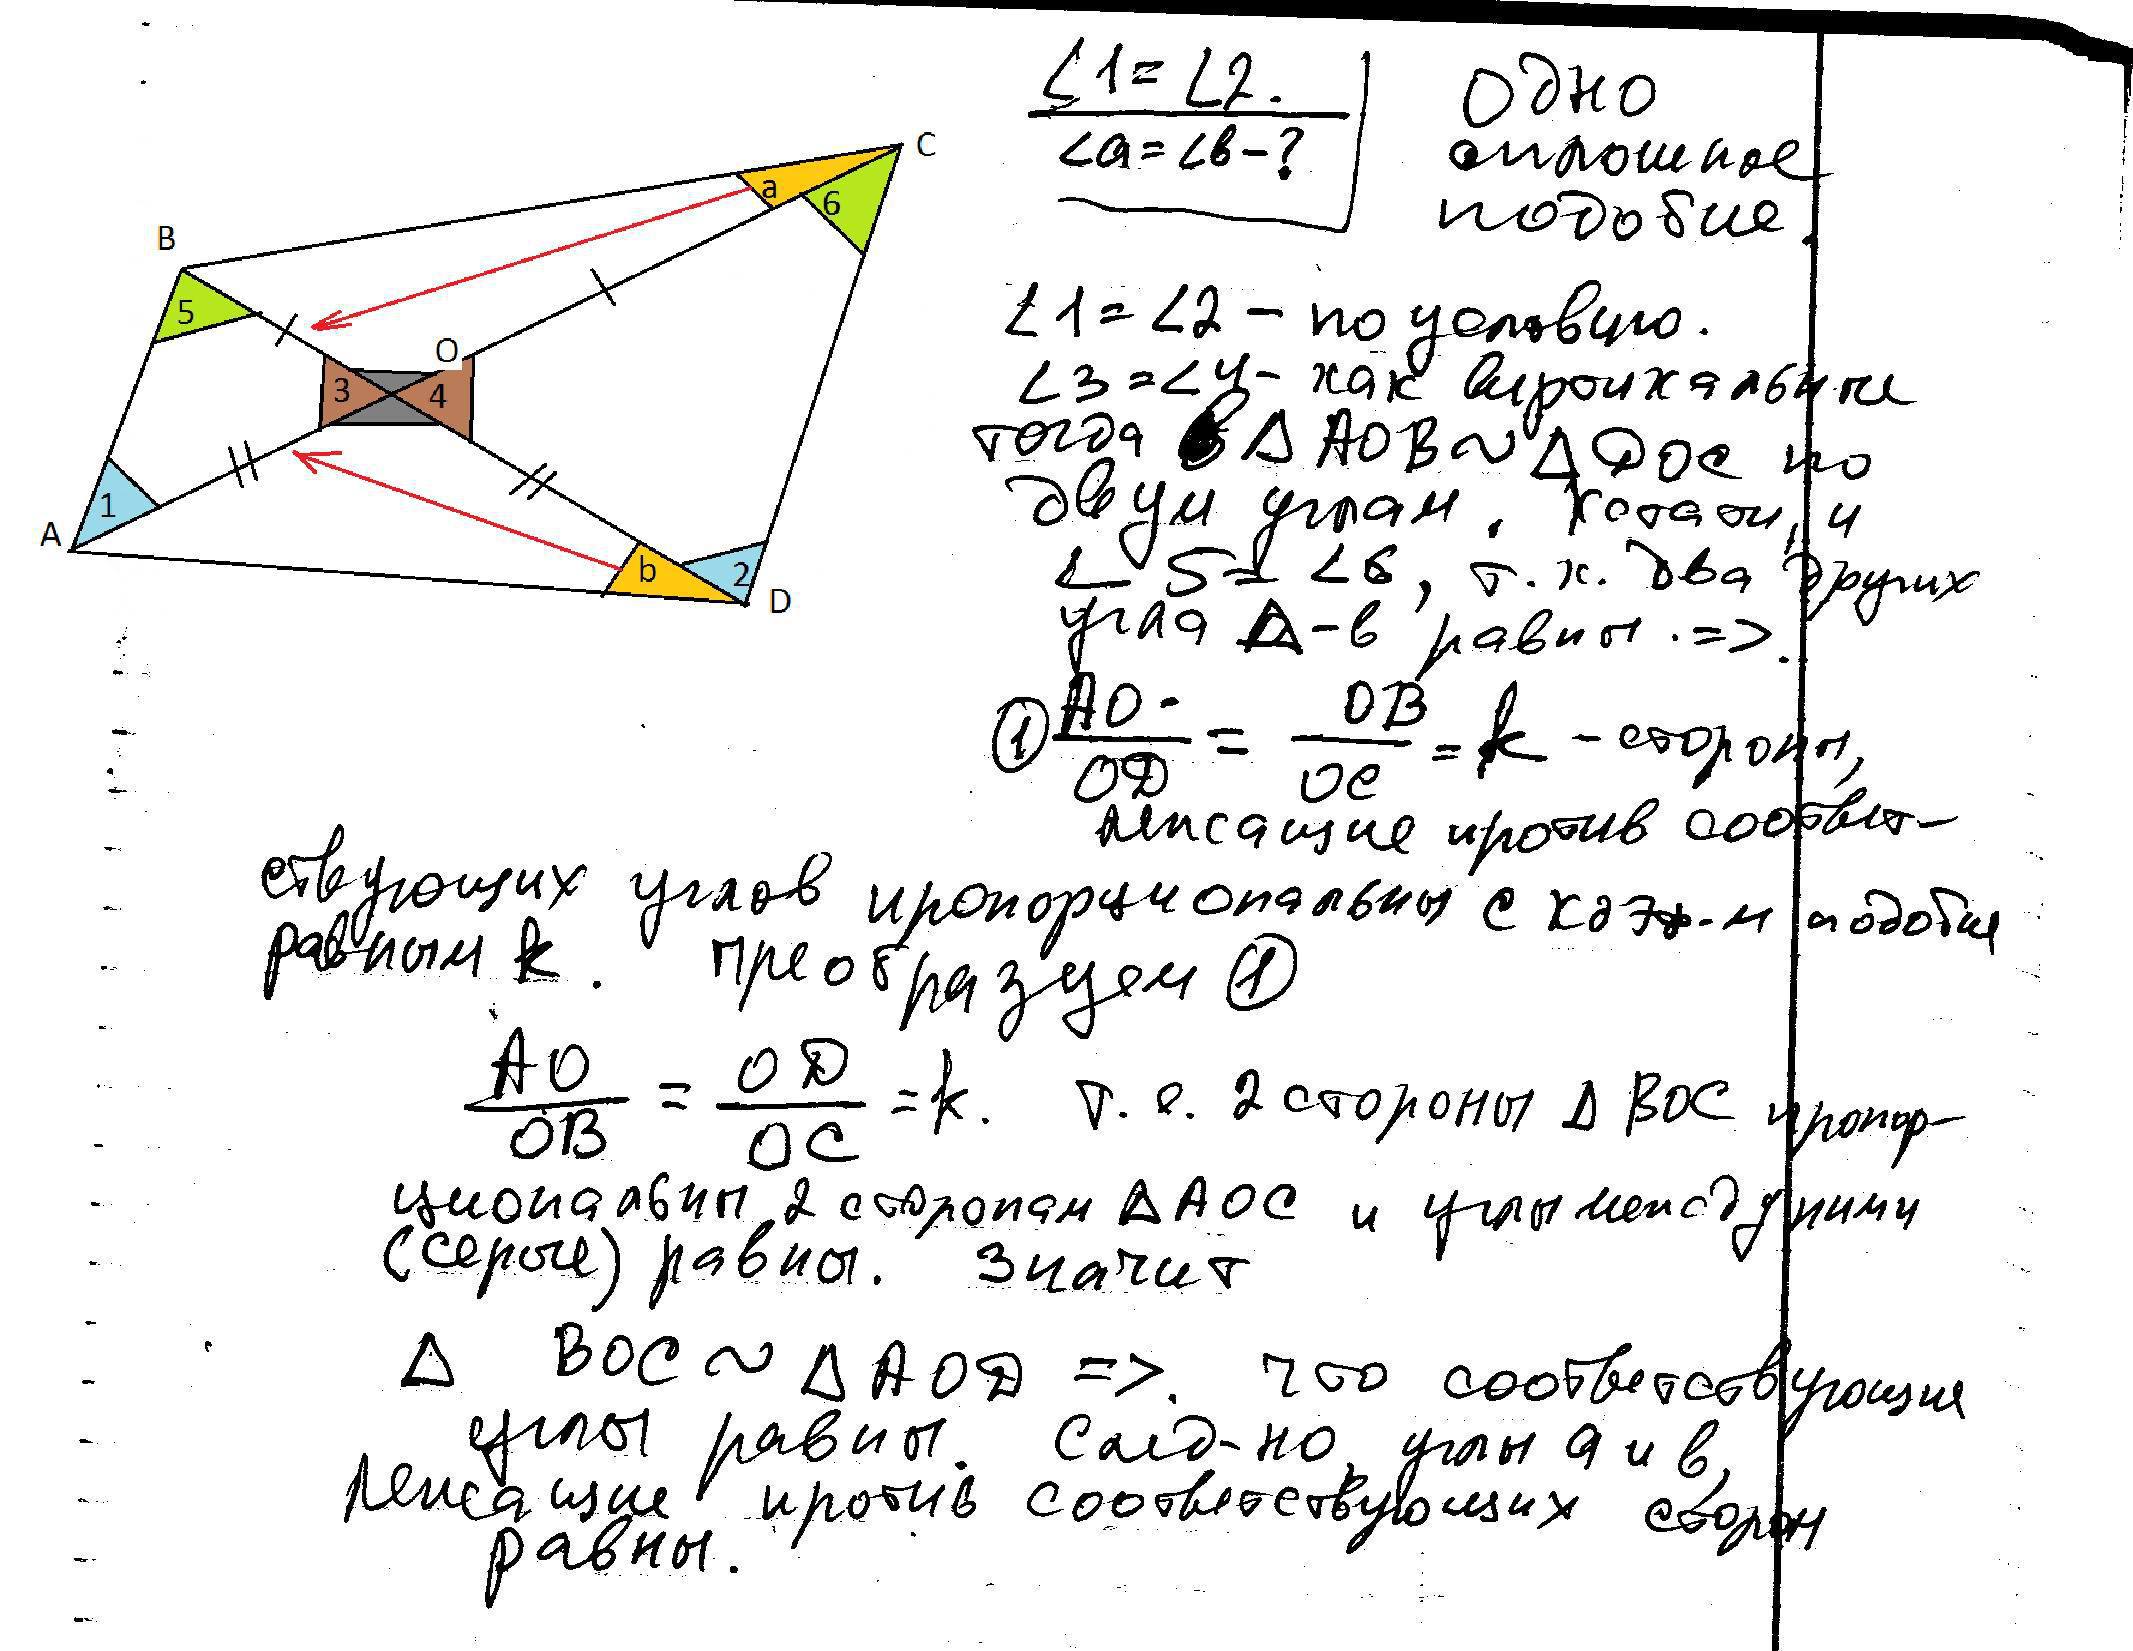 ∠1 = ∠2.
∠a = ∠b - ?
Одно
сплошное
подобие.
B
C
A
D
O
a
6
5
3
4
1
b
2
∠1 = ∠2 - по условию.
∠3 = ∠4 - как вертикальные
тогда в Δ AOB ~ Δ DOC по
двум углам. Кстати, и
∠5 = ∠6, т.к. два других
угла Δ-в равны. =>.
① AO / OD = OB / OC = k - стороны,
лежащие против соответ-
ствующих углов пропорциональны с кэф-м подобия
равным k. Преобразуем ①
AO / OB = OD / OC = k. т.е. 2 стороны Δ BOC пропор-
циональны 2 сторонам Δ AOC и углы между ними
(серые) равны. Значит
Δ BOC ~ Δ AOD =>. что соответствующие
углы равны. След-но, углы a и b,
лежащие против соответствующих сторон
равны.